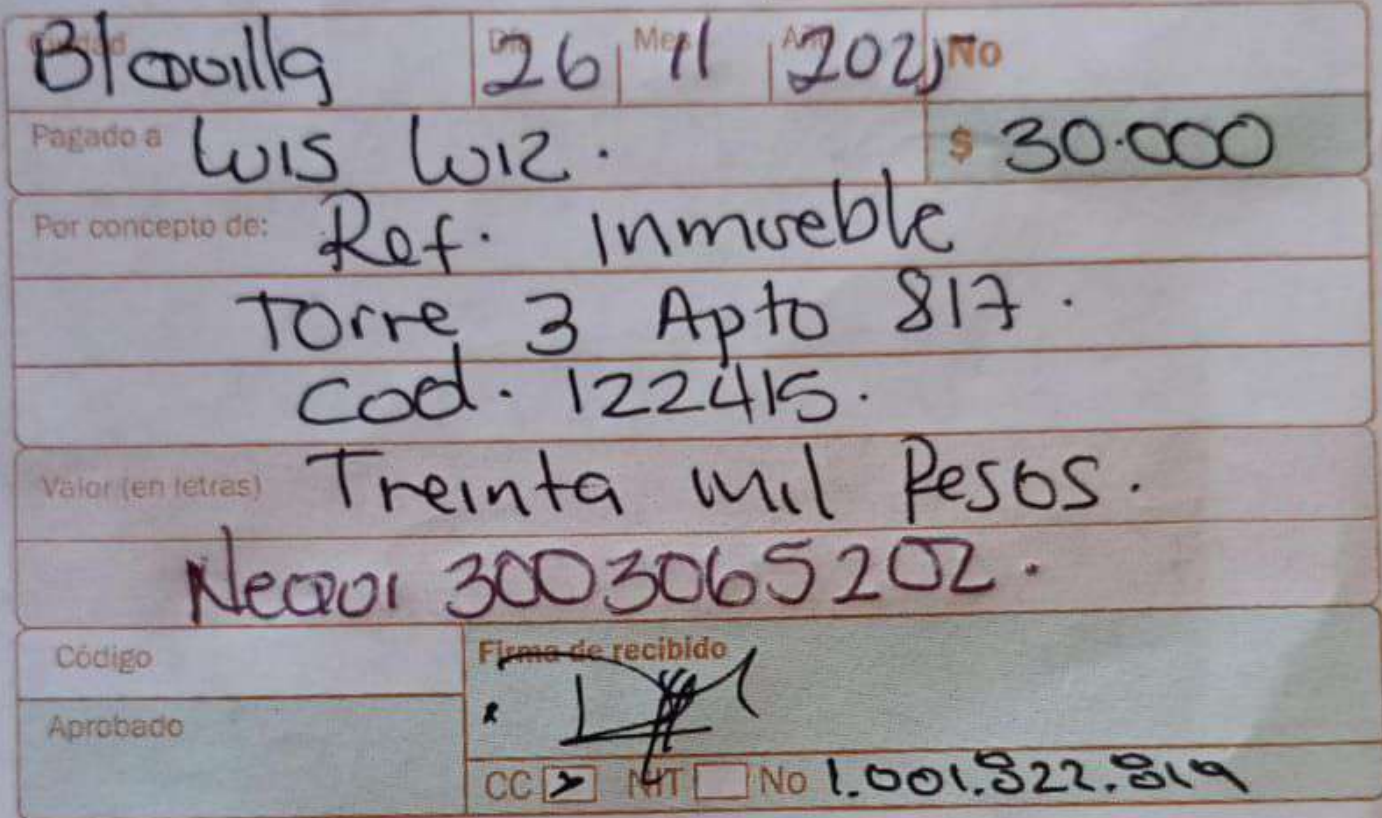 Ciudad B/quilla Día 26 Mes 11 Año 2025 No
Pagado a Luis Luiz. $ 30.000
Por concepto de: Ref. Inmueble
Torre 3 Apto 817.
Cod. 122415.
Valor (en letras) Treinta mil Pesos.
Nequi 3003065202.
Código
Firma de recibido
Aprobado
CC NIT No 1.001.822.819